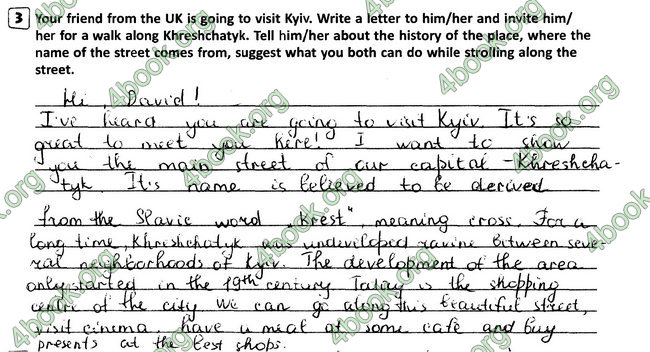 3 Your friend from the UK is going to visit Kyiv. Write a letter to him/her and invite him/
her for a walk along Khreshchatyk. Tell him/her about the history of the place, where the
name of the street comes from, suggest what you both can do while strolling along the
street.
Hi, David!
I've heard you are going to visit Kyiv. It's so
great to meet you here! I want to show
you the main street of our capital - Khreshcha-
tyk. It's name is believed to be derived
from the Slavic word „krest", meaning cross. For a
long time, Khreshchatyk was undeveloped ravine between seve-
ral neighborhoods of Kyiv. The development of the area
only started in the 19th century. Today is the shopping
centre of the city. We can go along this beautiful street,
visit cinema, have a meal at some cafe and buy
presents at the best shops.
4book.org